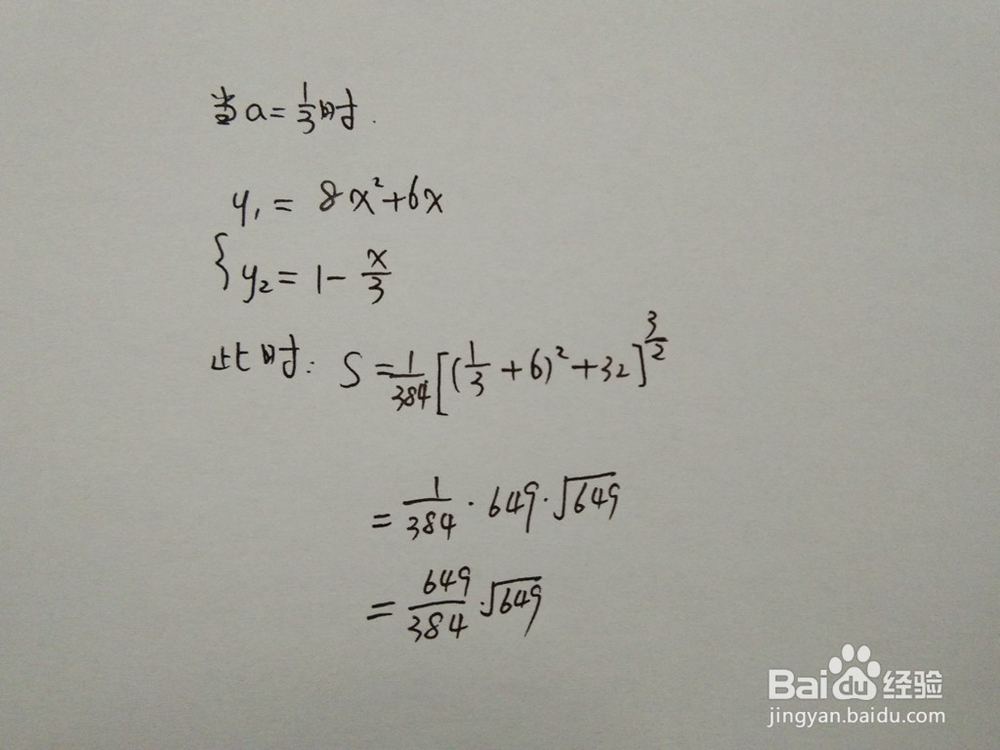 当a=1/3时.
y₁ = 8x²+6x
{y₂ = 1 - x/3
此时: S = 1/384 [(1/3 + 6)² + 32]^(3/2)
= 1/384 · 649 · √649
= 649/384 · √649
Baidu 经验
jingyan.baidu.com